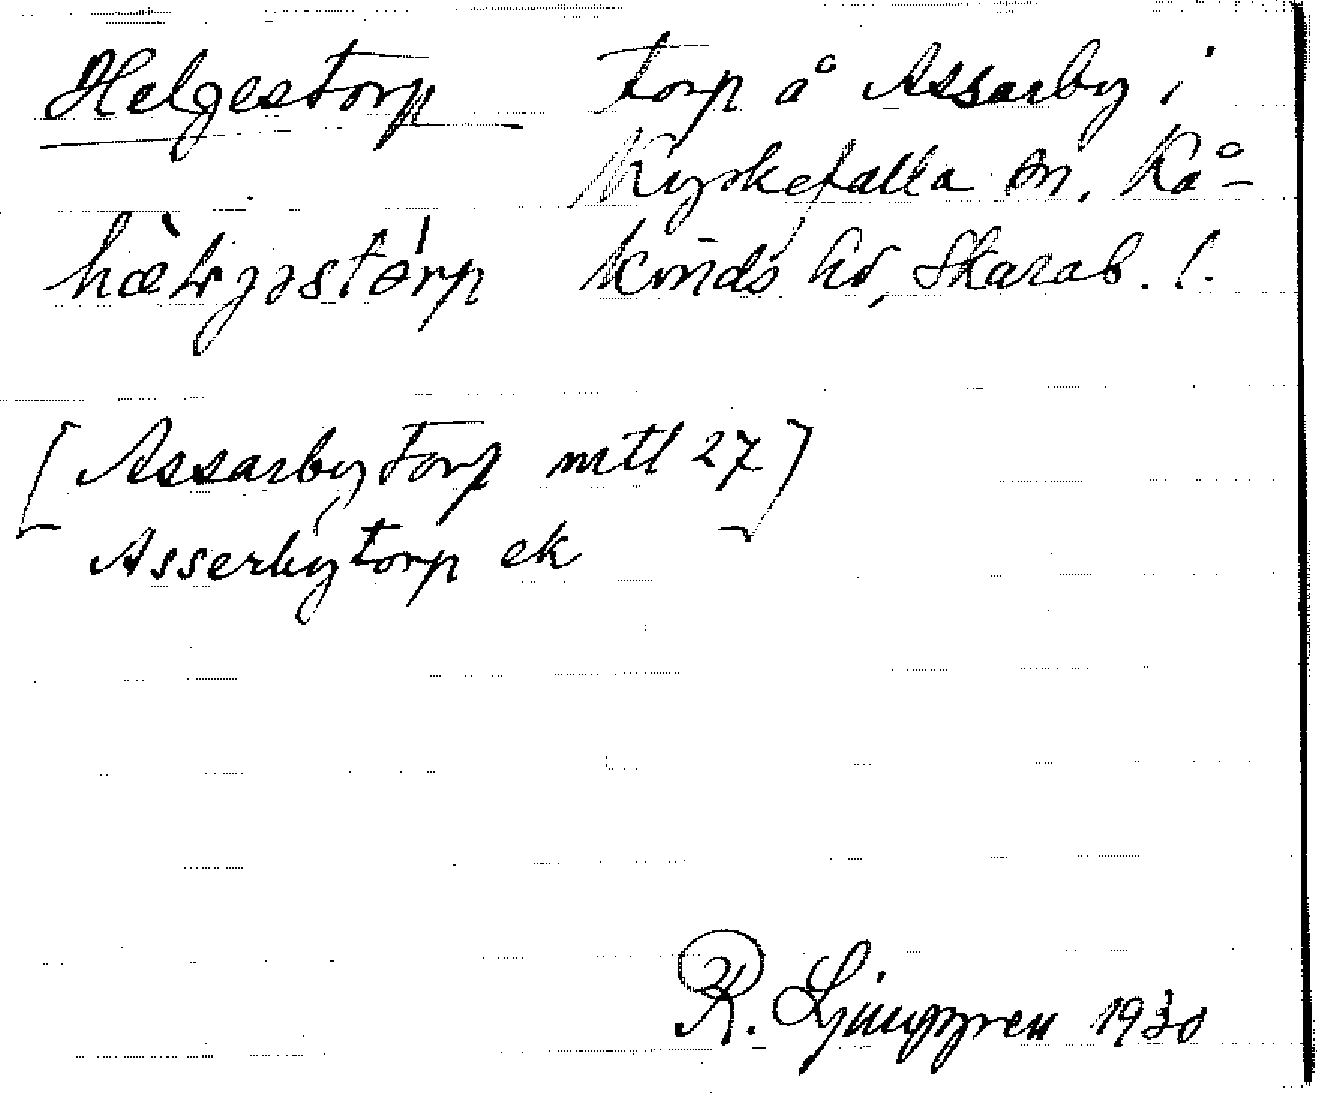 Helgestorp torp å Assarby i
Kyrkefalla sn, Kå-
hælgəstòrp kinds hd, Skarab. l.
[Assarbytorp mtl 27]
Asserbytorp ek
R. Ljunggren 1930